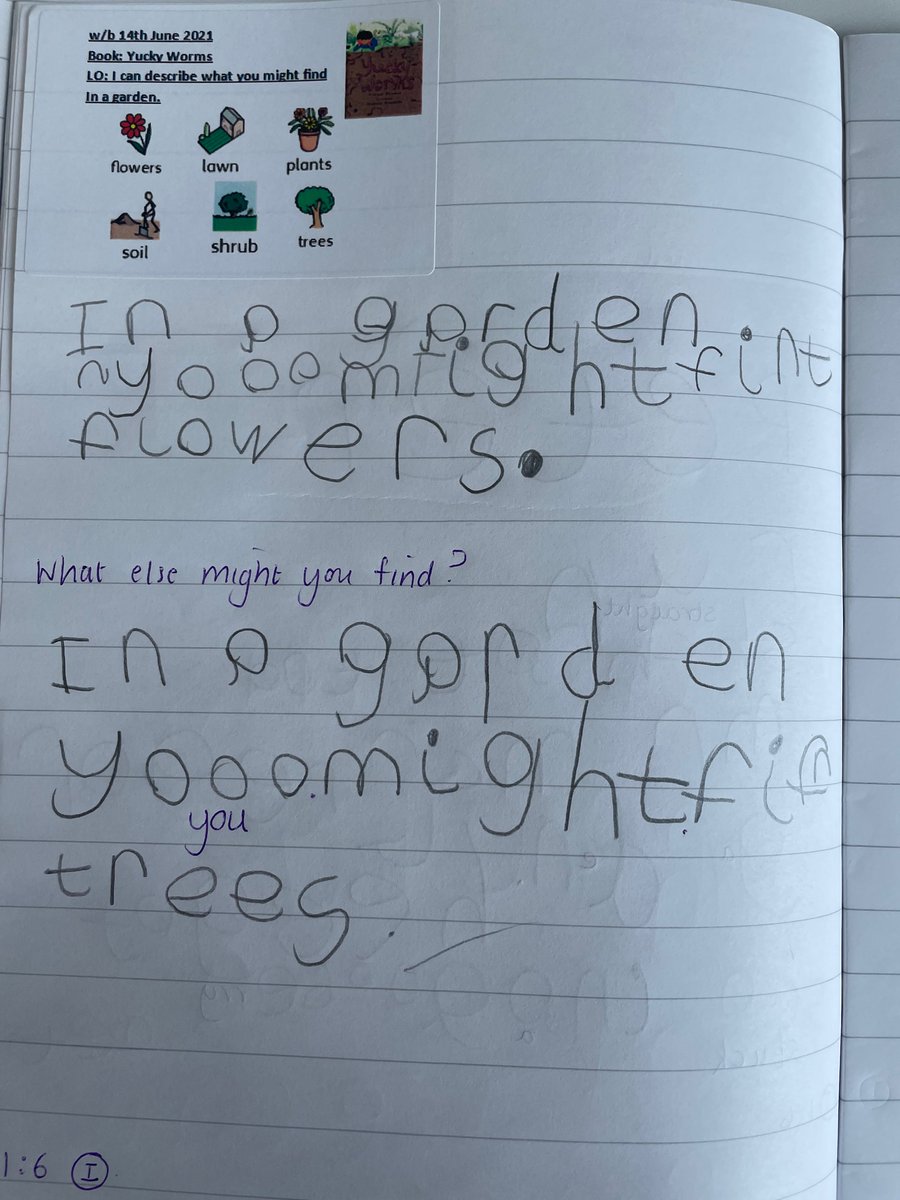 w/b 14th June 2021
Book: Yucky Worms
LO: I can describe what you might find
In a garden.
Yucky
Worms
flowers lawn plants
soil shrub trees
In a garden
yooo might fint
flowers.
What else might you find?
In a garden
yooo.might.fin
you
trees.
1:6 I